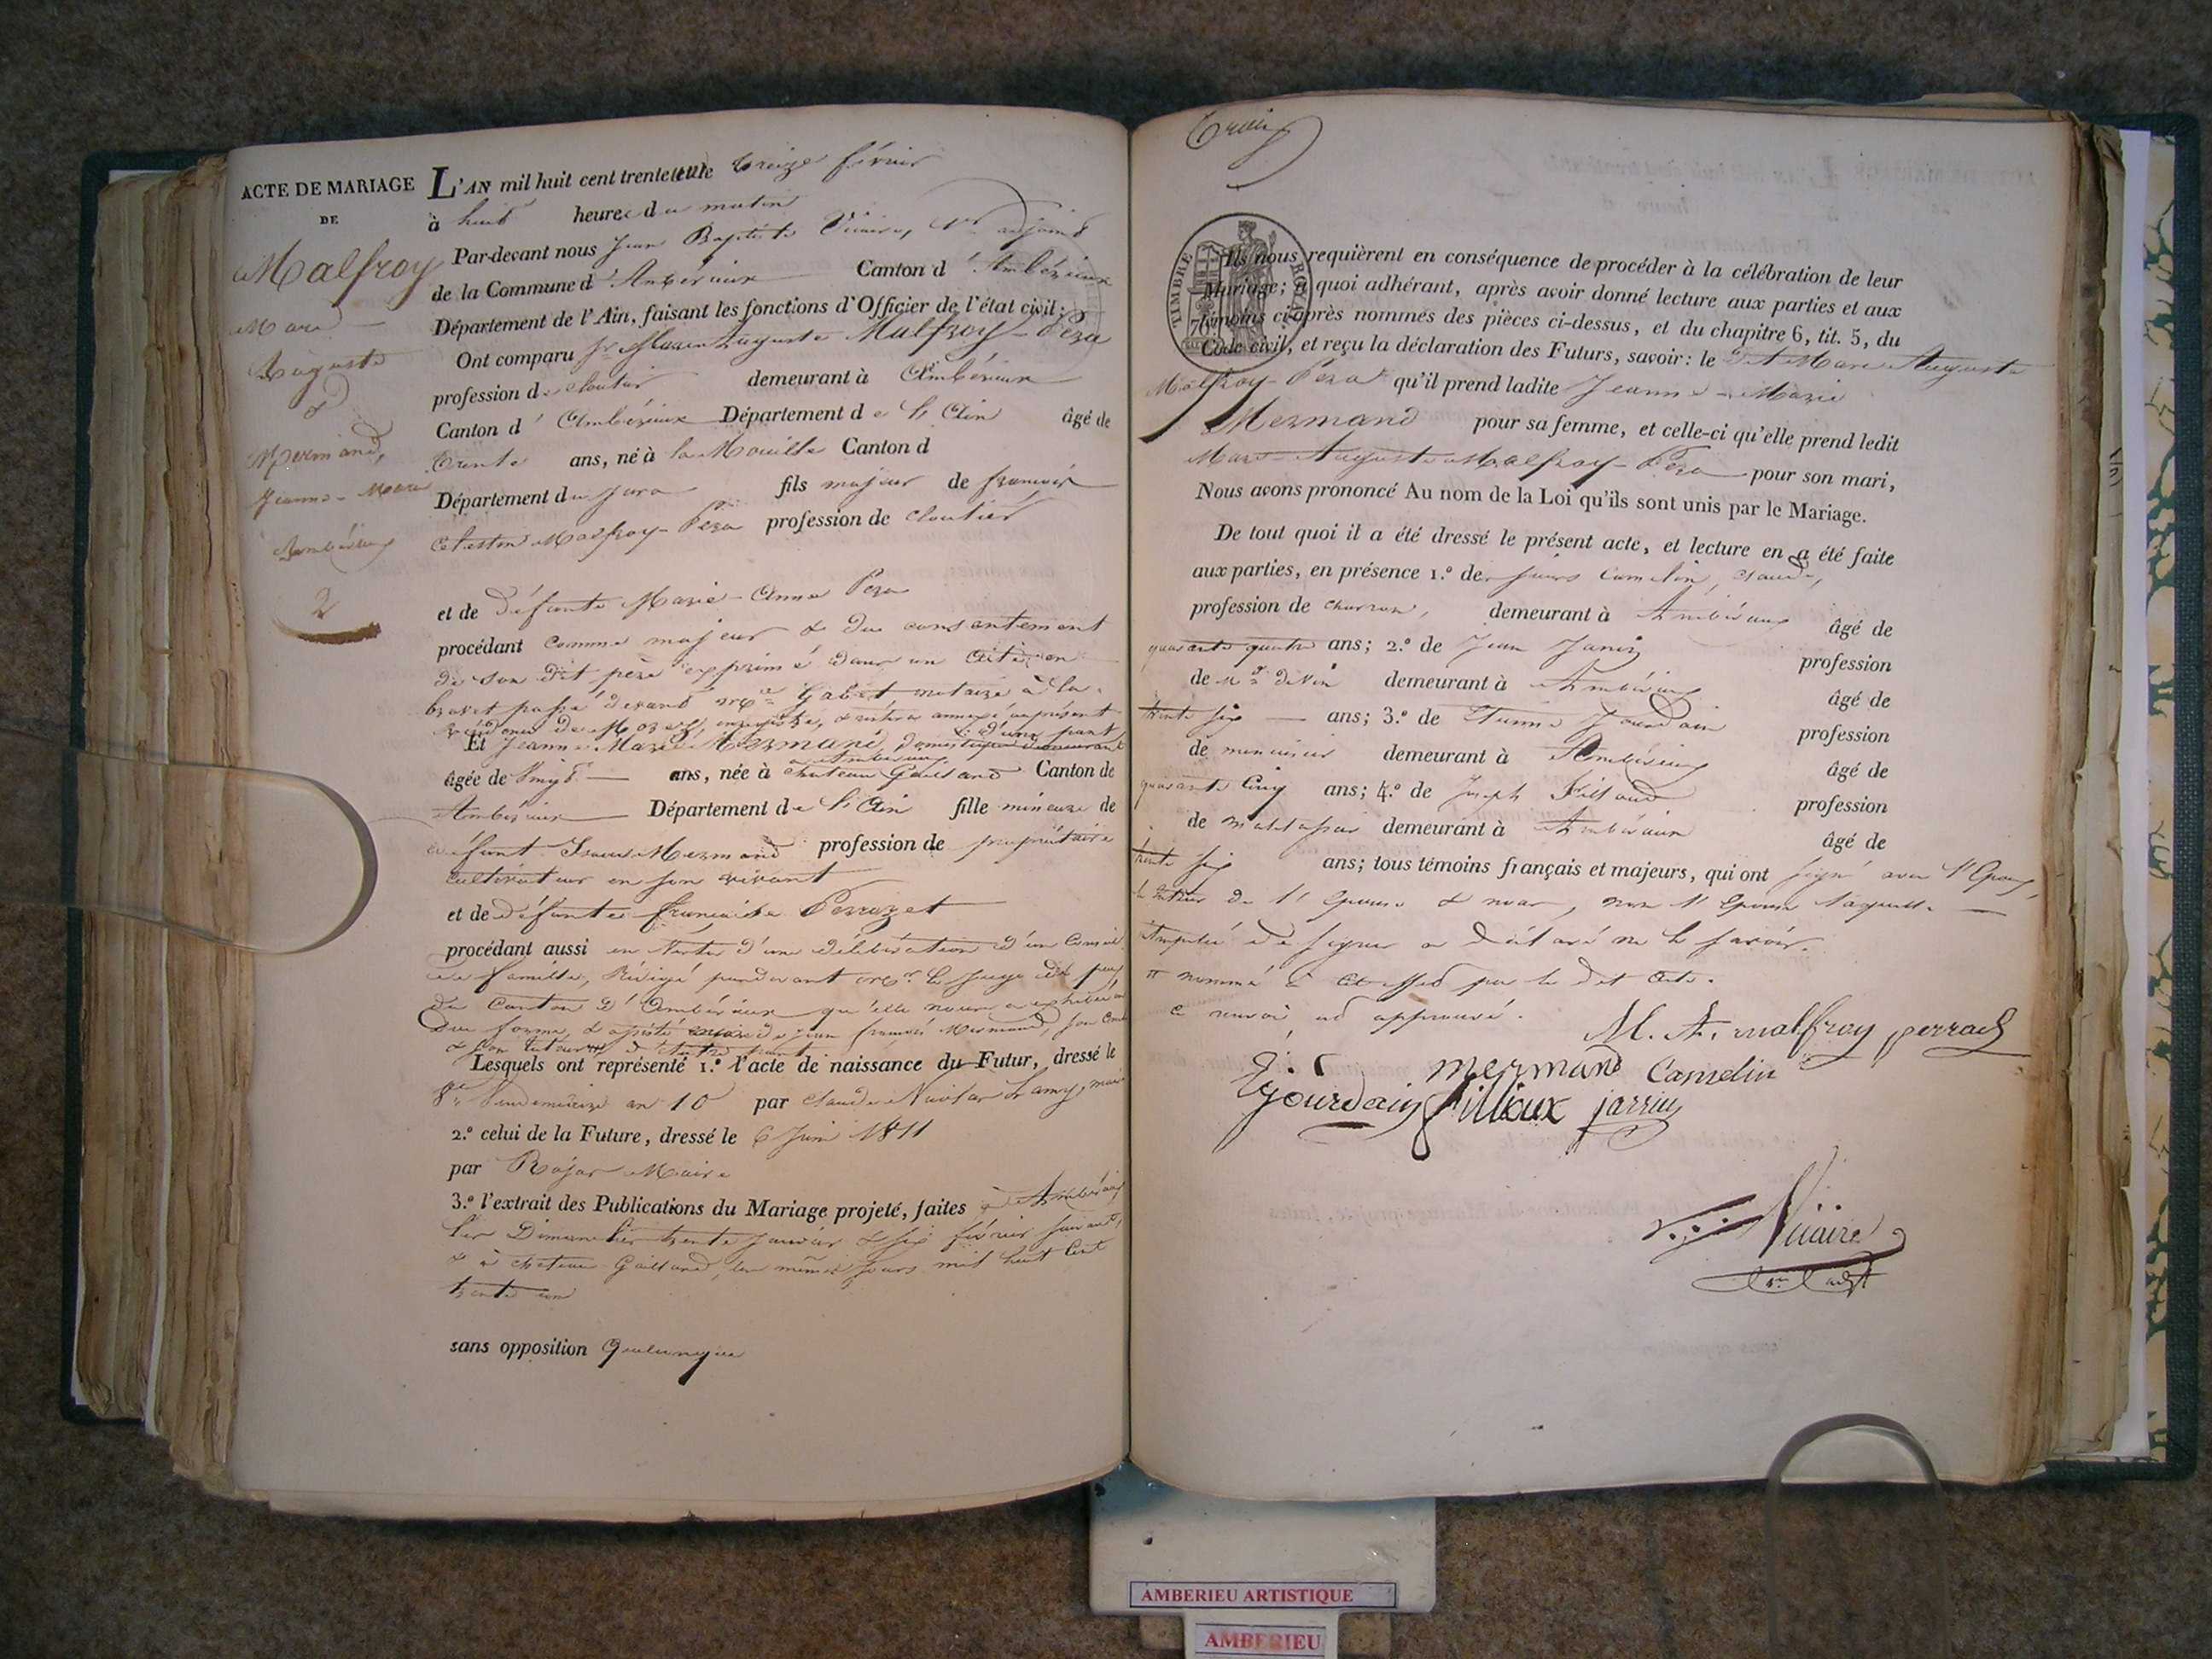 ACTE DE MARIAGE
DE
Malfroy
Marc
Auguste
&
Mermand,
Jeanne-Marie
Ambérieux
2
L'AN mil huit cent trente treize février
à huit heures du matin
Par-devant nous Jean Baptiste Vicaire, 1er adjoint
de la Commune d'Ambérieux Canton d'Ambérieux
Département de l'Ain, faisant les fonctions d'Officier de l'état civil;
Ont comparu Sr Marc Auguste Malfroy-Pera
profession de cloutier demeurant à Ambérieux
Canton d'Ambérieux Département de l'Ain âgé de
trente ans, né à la Mouille Canton d
Département du Jura fils majeur de françois
Celestin Malfroy-Pera profession de cloutier
et de défunte Marie-Anne Pera
procédant comme majeur & du consentement
de son dit père exprimé dans un acte en
brevet passé devant Me Gabet notaire à la
résidence de Morez, enregistré, & annexé au présent d'une part
Et Jeanne Marie Mermand, domestique demeurant
à Ambérieux
âgée de vingt ans, née à chateau Gaillard Canton de
Ambérieux Département de l'Ain fille mineure de
défunt Mermand profession de propriétaire
cultivateur en son vivant
et de défunte françoise Perrozet
procédant aussi en vertu d'une délibération d'un Conseil
de famille, Rédigé pardevant Mr le juge de paix
du Canton d'Ambérieux qu'elle nous a exhibé en
due forme, & assisté de jean françois Mermand, son
& son tuteur d'autre part
Lesquels ont représenté 1.º l'acte de naissance du Futur, dressé le
8e Vendemiaire an 10 par Claude Nicolas Lamy, maire
2.º celui de la Future, dressé le 6 Juin 1811
par Maire
3.º l'extrait des Publications du Mariage projeté, faites à Ambérieux
les Dimanches trente janvier & six février suivant,
& à chateau Gaillard, les mêmes jours mil huit cent
trente un
sans opposition Quelconque
Trois
TIMBRE ROYAL
Ils nous requièrent en conséquence de procéder à la célébration de leur
Mariage; à quoi adhérant, après avoir donné lecture aux parties et aux
témoins ci-après nommés des pièces ci-dessus, et du chapitre 6, tit. 5, du
Code civil, et reçu la déclaration des Futurs, savoir: le dit Marc Auguste
Malfroy-Pera qu'il prend ladite Jeanne-Marie
Mermand pour sa femme, et celle-ci qu'elle prend ledit
Marc Auguste Malfroy-Pera pour son mari,
Nous avons prononcé Au nom de la Loi qu'ils sont unis par le Mariage.
De tout quoi il a été dressé le présent acte, et lecture en a été faite
aux parties, en présence 1.º de sieurs Camelin, Claude,
profession de charron, demeurant à Ambérieux âgé de
quarante quatre ans; 2.º de Jean profession
de Md de vin demeurant à Ambérieux âgé de
trente six ans; 3.º de Etienne Jourdain profession
de menuisier demeurant à Ambérieux âgé de
quarante cinq ans; 4.º de Joseph profession
de demeurant à Ambérieux âgé de
trente six ans; tous témoins français et majeurs, qui ont signé avec l'Epoux,
le tuteur de l'épouse & nous, non l'épouse laquelle
de signer a déclaré ne le savoir.
nommé à cet effet par le dit acte.
renvoi approuvé.
M. A. malfroy perrad
mermand Camelin
Ejourdain fillioux jarrin
Vicaire
1er adjt
AMBERIEU ARTISTIQUE
AMBERIEU